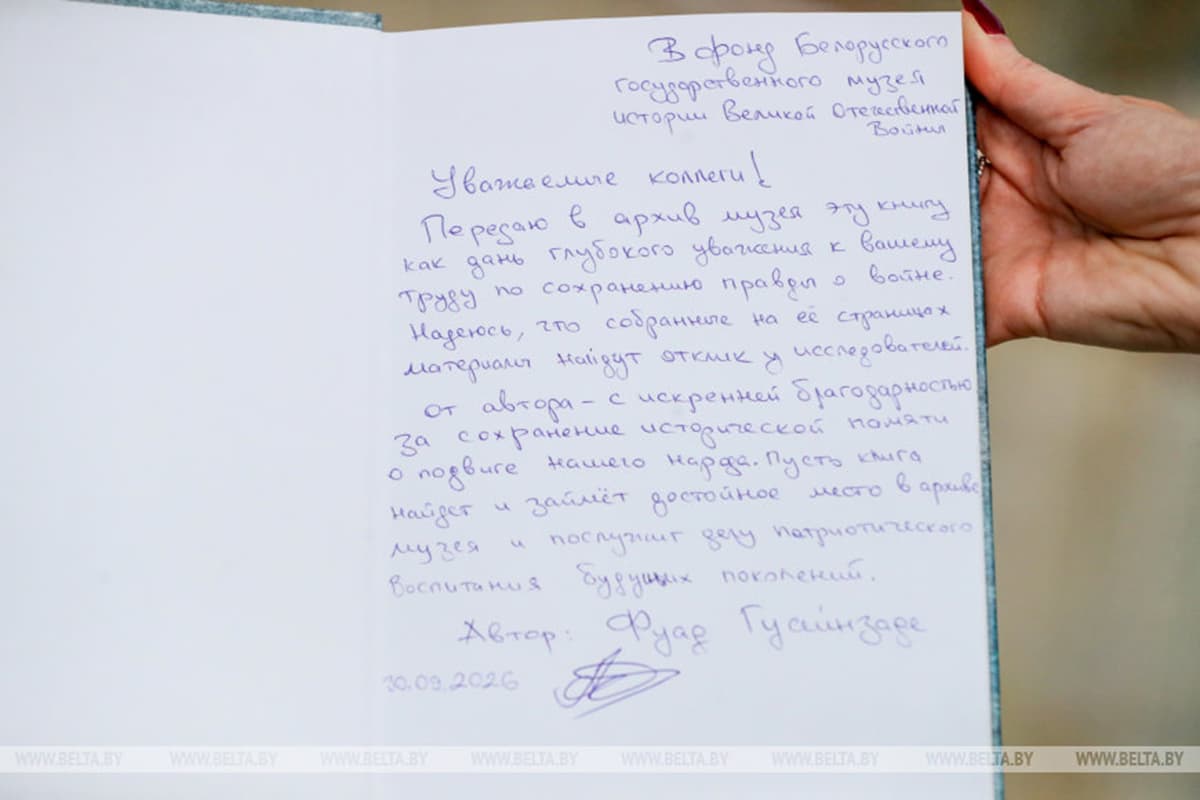 В фонд Белорусского
государственного музея
истории Великой Отечественной
Войны
Уважаемые коллеги!
Передаю в архив музея эту книгу
как дань глубокого уважения к вашему
труду по сохранению правды о войне.
Надеюсь, что собранные на её страницах
материалы найдут отклик у исследователей.
от автора – с искренней благодарностью
за сохранение исторической памяти
о подвиге нашего нарда. Пусть книга
найдет и займёт достойное место в архиве
музея и послужит делу патриотического
воспитания будущих поколений.
Автор: Фуад Гусейнзаде
30.09.2026
WWW.BELTA.BY WWW.BELTA.BY WWW.BELTA.BY WWW.BELTA.BY WWW.BELTA.BY WWW.BELTA.BY WWW.BELTA.BY WWW.BELTA.BY